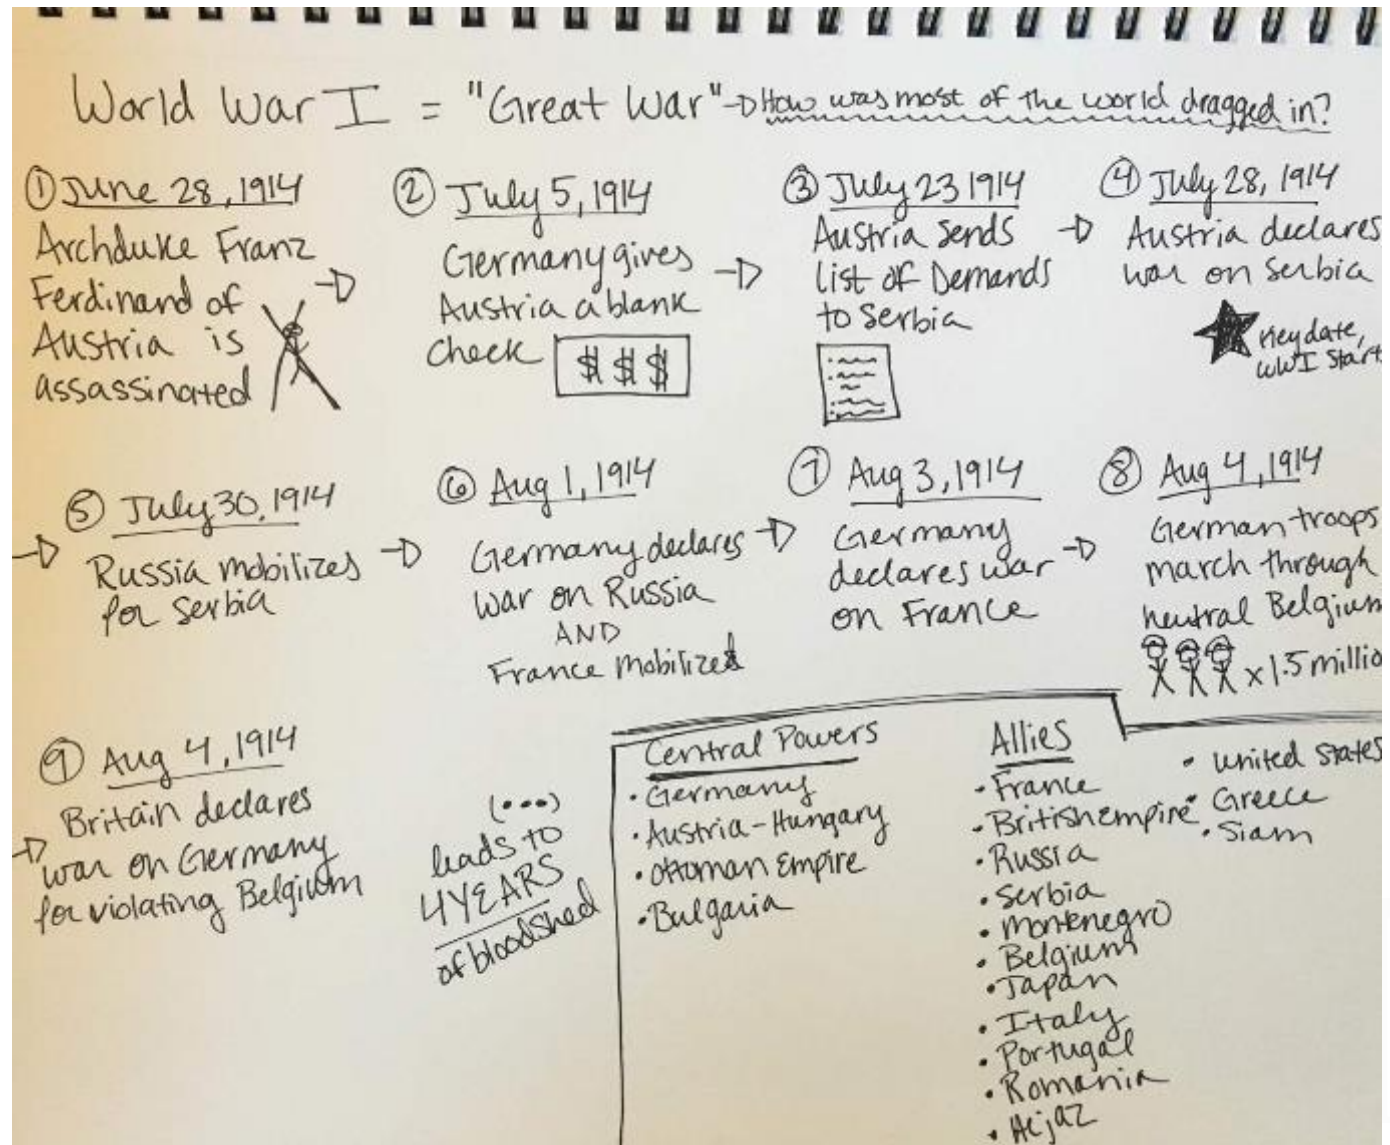 World War I = "Great War" → How was most of the world dragged in?
① June 28, 1914
Archduke Franz
Ferdinand of
Austria is
assassinated
→
② July 5, 1914
Germany gives
Austria a blank
check $ $ $
→
③ July 23 1914
Austria sends
list of Demands
to Serbia
→
④ July 28, 1914
Austria declares
war on Serbia
Key date,
WWI Start
→
⑤ July 30, 1914
Russia mobilizes
for Serbia
→
⑥ Aug 1, 1914
Germany declares
war on Russia
AND
France mobilized
→
⑦ Aug 3, 1914
Germany
declares war
on France
→
⑧ Aug 4, 1914
German troops
march through
neutral Belgium
x 1.5 millio
→
⑨ Aug 4, 1914
Britain declares
war on Germany
for violating Belgium
(...)
leads to
4 YEARS
of bloodshed
Central Powers
• Germany
• Austria-Hungary
• Ottoman Empire
• Bulgaria
Allies
• France
• British empire
• Russia
• Serbia
• Montenegro
• Belgium
• Japan
• Italy
• Portugal
• Romania
• Hejaz
• United States
• Greece
• Siam